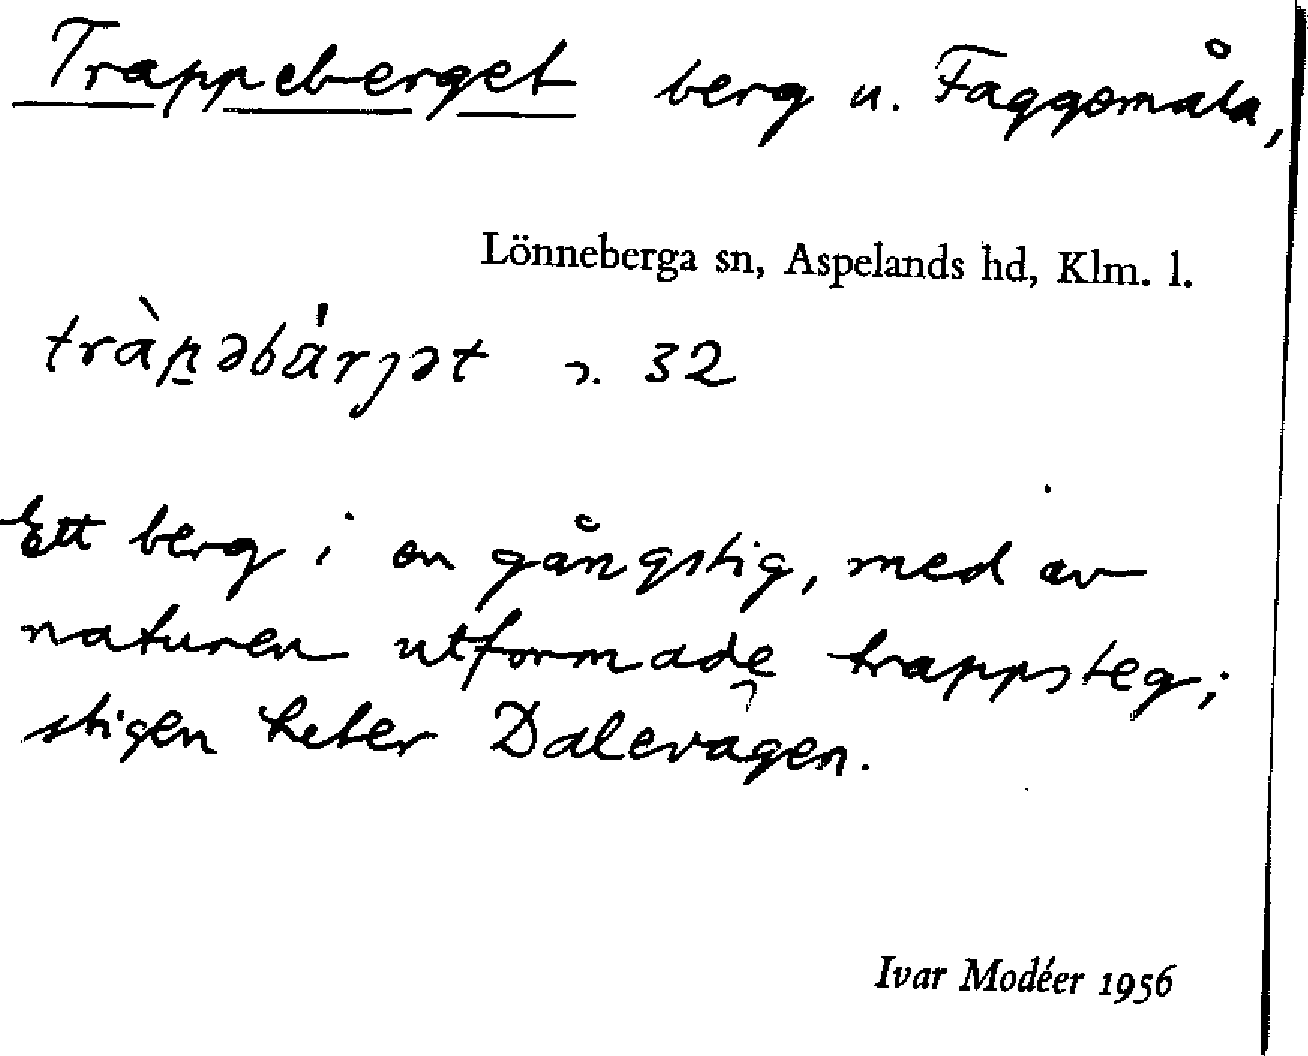 Trappeberget berg u. Faggemåla,
Lönneberga sn, Aspelands hd, Klm. l.
tràp̠əbα̍rȷət ɔ. 32
Ett berg i en gångstig, med av
naturen utformade trappsteg;
stigen heter Dalevägen.
Ivar Modéer 1956